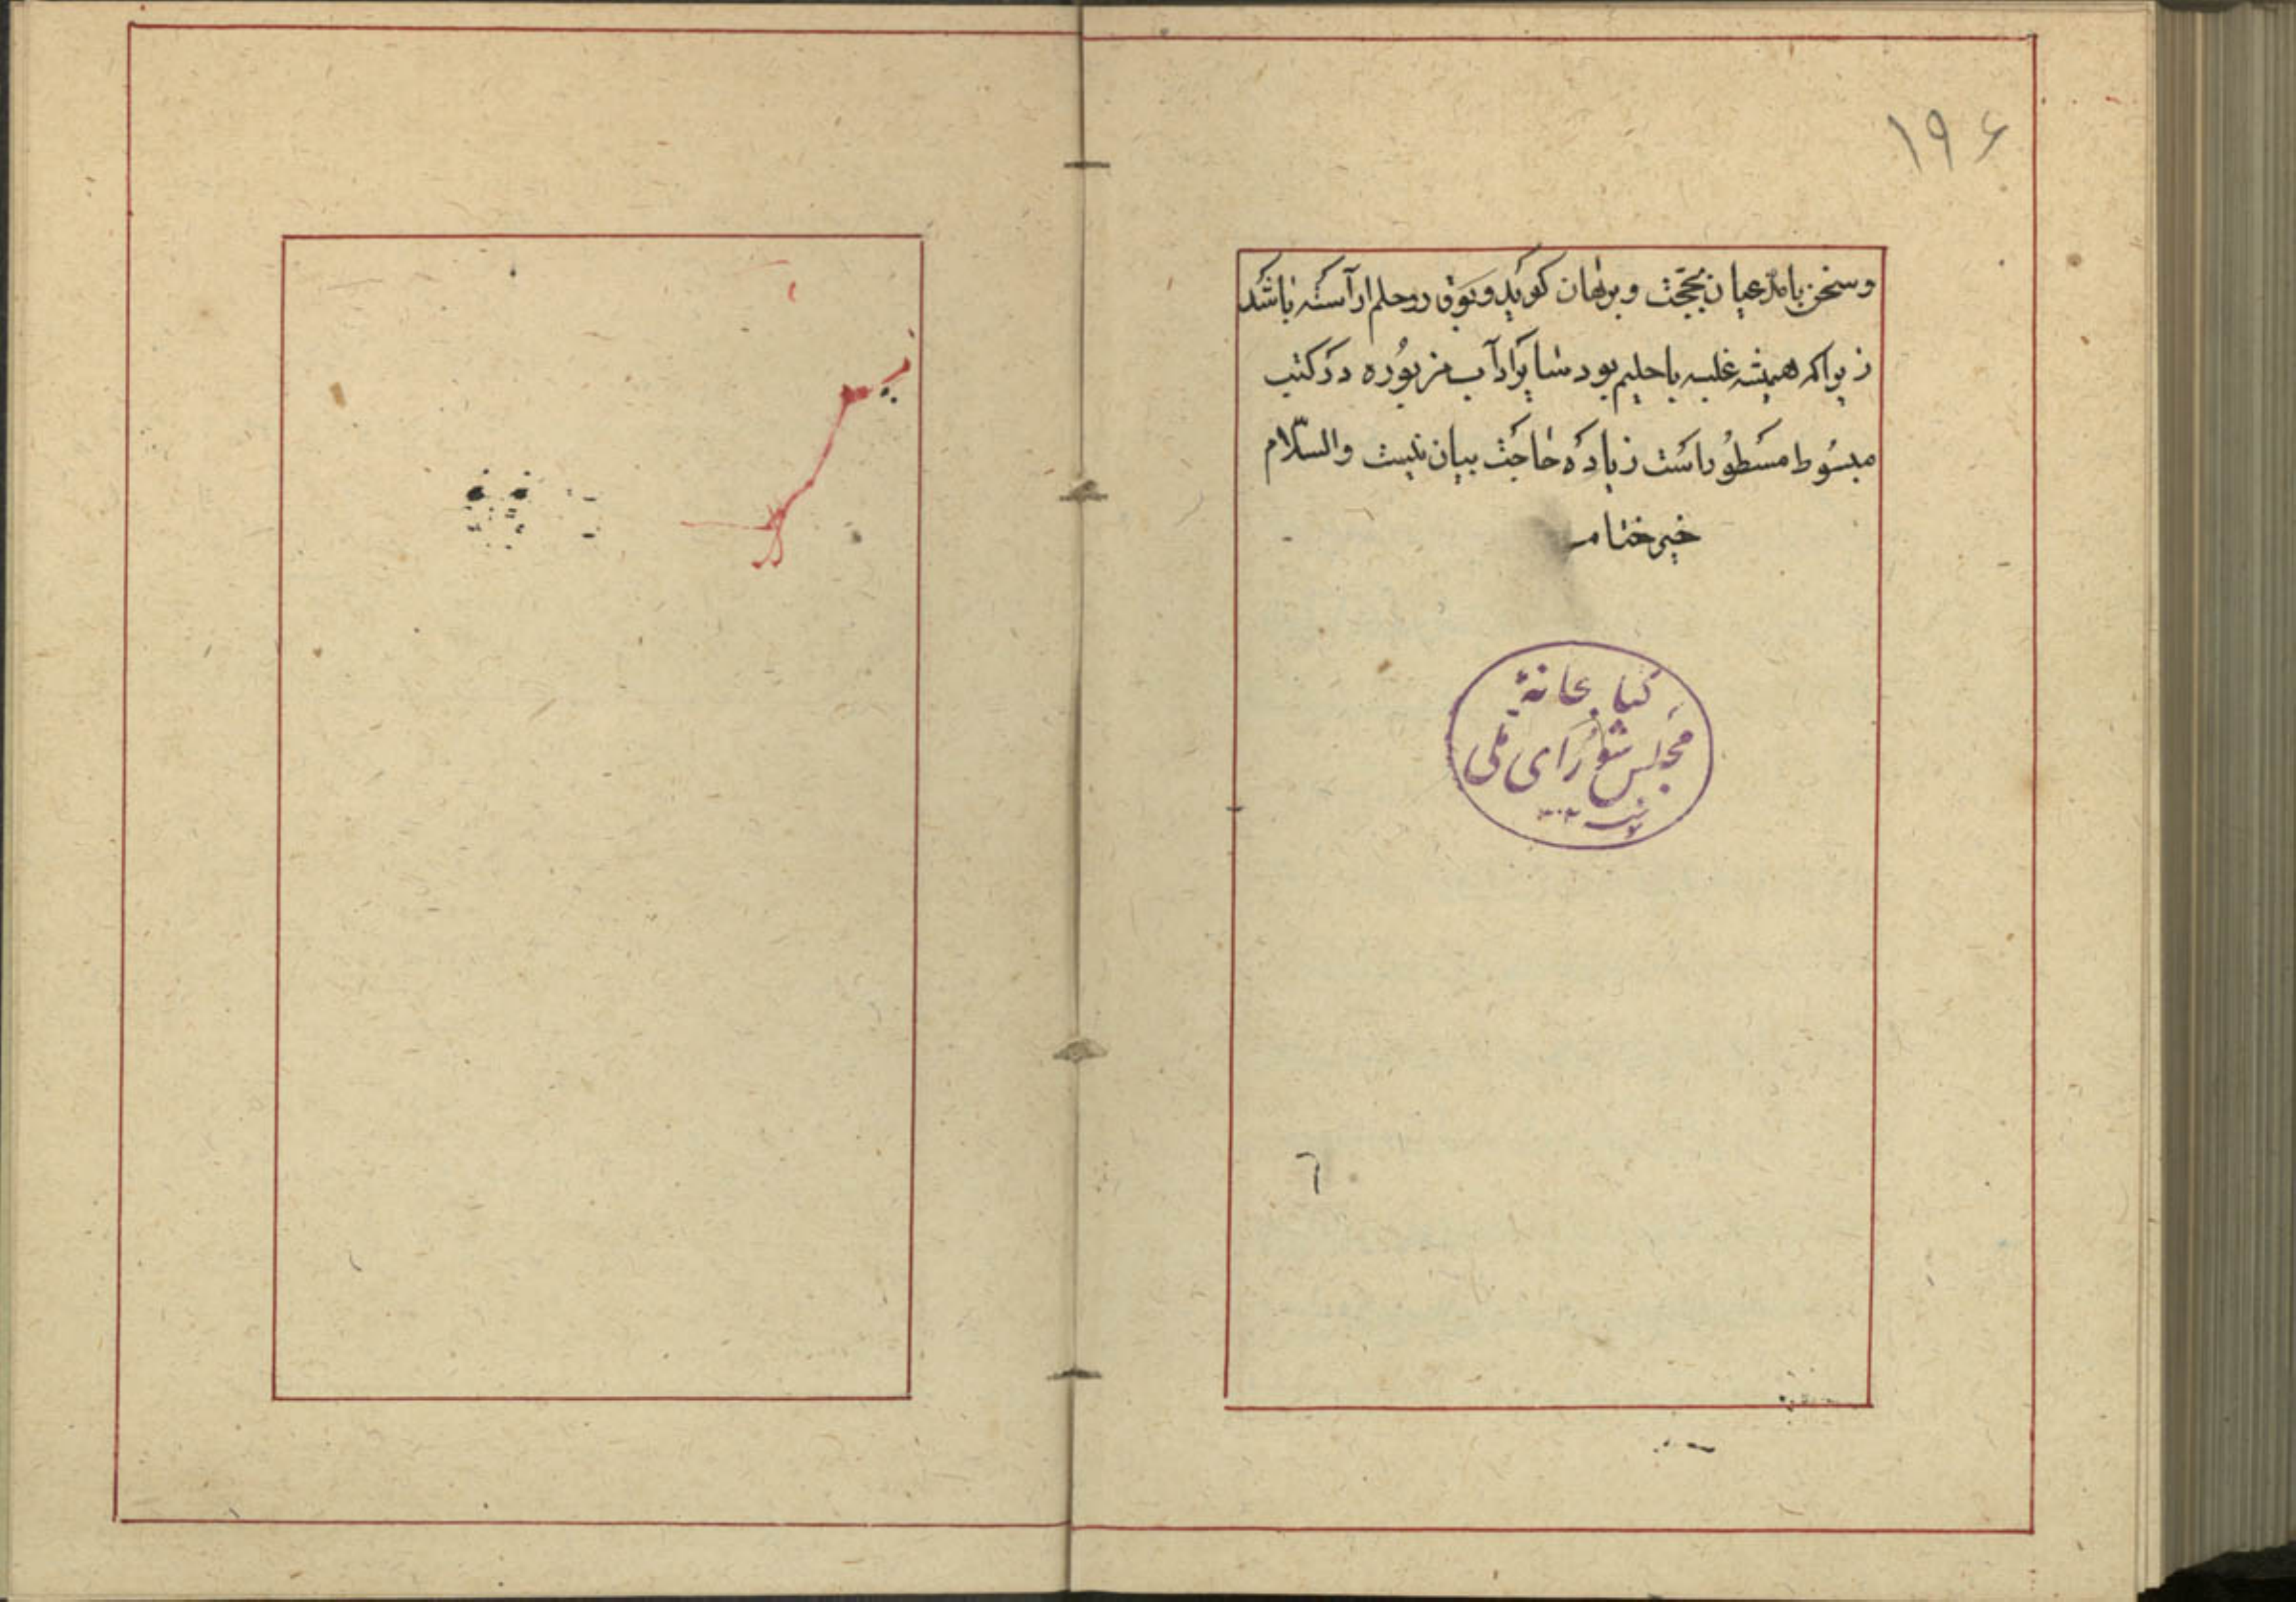 ۱۹۶
و سخن با مدعیان بحجت و برهان کوید و بوقر و حلم اراسته باشد
زیراکه همیشه غلبه با حلیم بود سایر اداب مزبوره در کتب
مبسوط مسطور است زیاده حاجت بیان نیست والسّلام
خیر ختام
کتابخانهٔ
مجلس شورای ملی